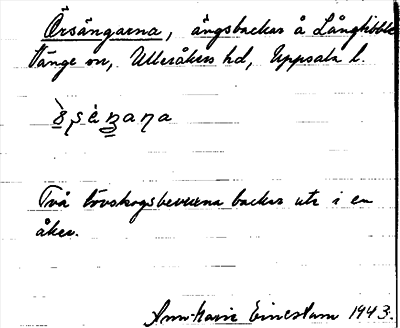 Örsängarna, ängsbackar å Långtibble
Vänge sn, Ulleråkers hd, Uppsala l.
Två lövskogsbevuxna backar ute i en
åker.
Ann-Marie Einestam 1943.